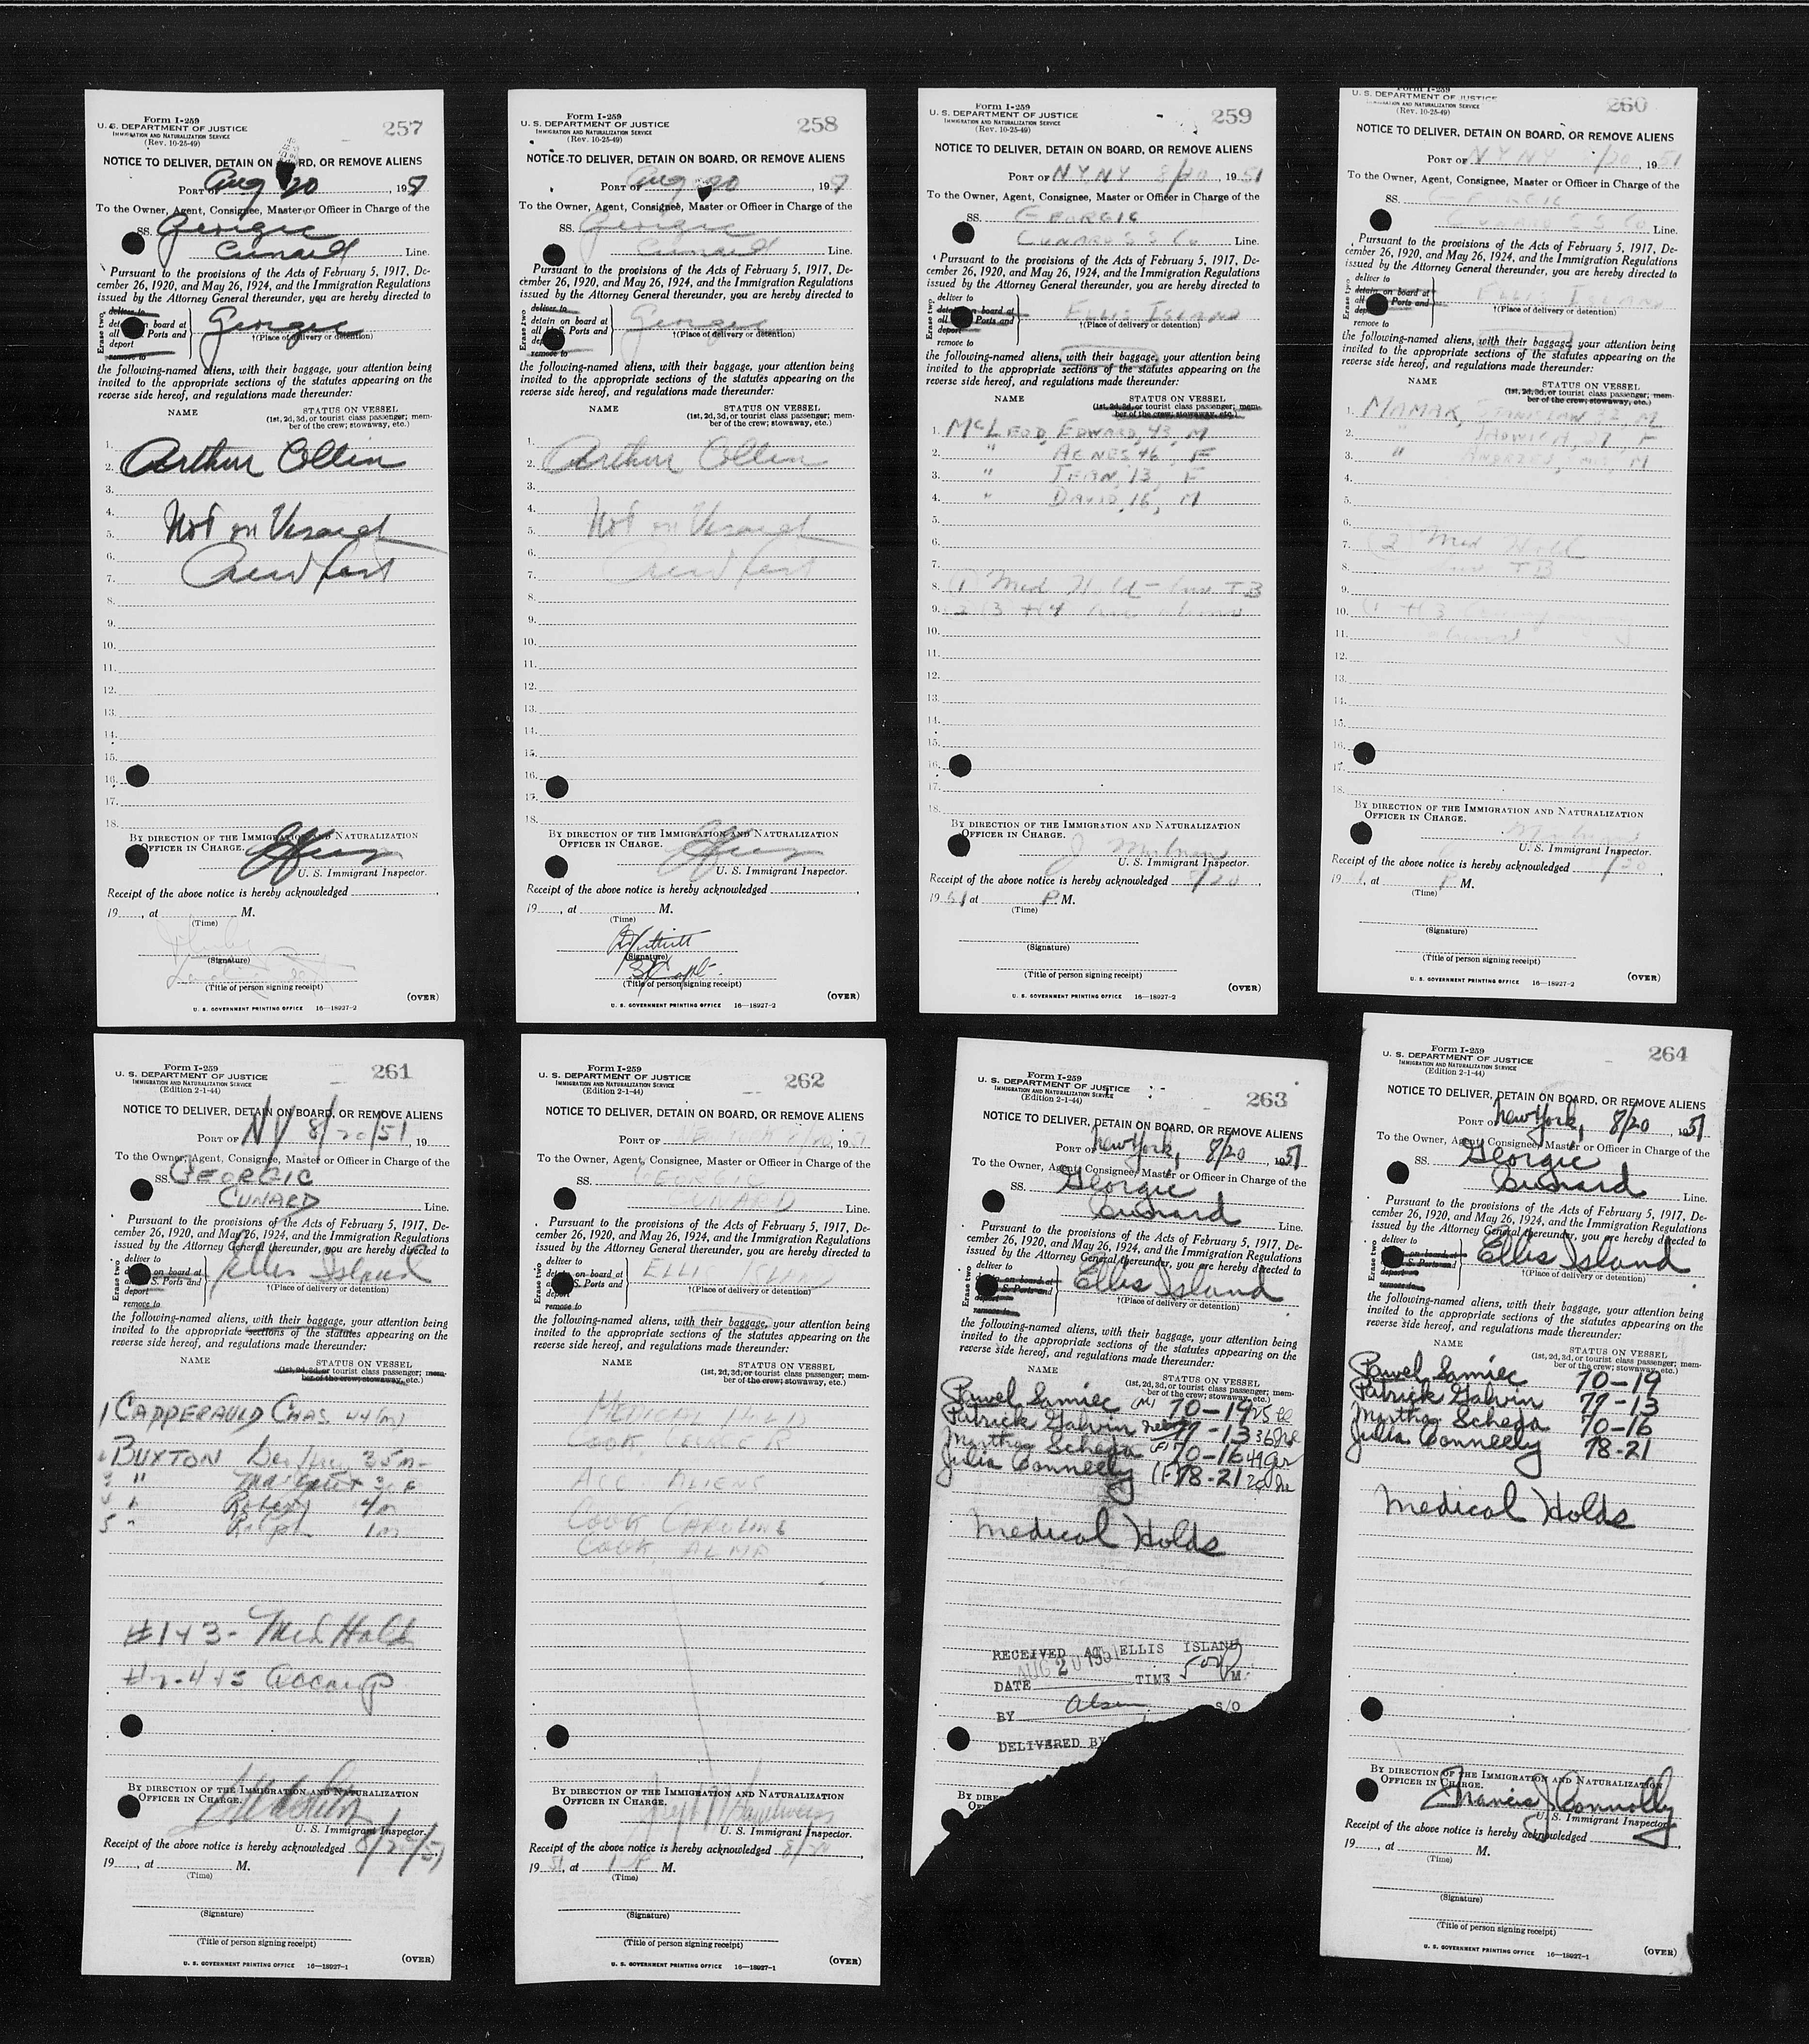 Form I-259
U. S. DEPARTMENT OF JUSTICE
IMMIGRATION AND NATURALIZATION SERVICE
(Rev. 10-25-49)
257
NOTICE TO DELIVER, DETAIN ON BOARD, OR REMOVE ALIENS
PORT OF Aug 20, 1951
To the Owner, Agent, Consignee, Master or Officer in Charge of the
SS. Georgic
Cunard Line.
Pursuant to the provisions of the Acts of February 5, 1917, De-
cember 26, 1920, and May 26, 1924, and the Immigration Regulations
issued by the Attorney General thereunder, you are hereby directed to
Erase two
deliver to
detain on board at
all U. S. Ports and
deport
remove to
Georgic
†(Place of delivery or detention)
the following-named aliens, with their baggage, your attention being
invited to the appropriate sections of the statutes appearing on the
reverse side hereof, and regulations made thereunder:
NAME STATUS ON VESSEL
(1st, 2d, 3d, or tourist class passenger; mem-
ber of the crew; stowaway, etc.)
1.
2. Arthur Ollin
3.
4.
5. Not on Visaed
6.
7. Crew List
8.
9.
10.
11.
12.
13.
14.
15.
16.
17.
18.
BY DIRECTION OF THE IMMIGRATION AND NATURALIZATION
OFFICER IN CHARGE.
U. S. Immigrant Inspector.
Receipt of the above notice is hereby acknowledged
19, at M.
(Time)
(Signature)
(Title of person signing receipt)
(OVER)
U. S. GOVERNMENT PRINTING OFFICE 16—18927-2
Form I-259
U. S. DEPARTMENT OF JUSTICE
IMMIGRATION AND NATURALIZATION SERVICE
(Rev. 10-25-49)
258
NOTICE TO DELIVER, DETAIN ON BOARD, OR REMOVE ALIENS
PORT OF Aug 20, 1951
To the Owner, Agent, Consignee, Master or Officer in Charge of the
SS. Georgic
Cunard Line.
Pursuant to the provisions of the Acts of February 5, 1917, De-
cember 26, 1920, and May 26, 1924, and the Immigration Regulations
issued by the Attorney General thereunder, you are hereby directed to
Erase two
deliver to
detain on board at
all U. S. Ports and
deport
remove to
Georgic
†(Place of delivery or detention)
the following-named aliens, with their baggage, your attention being
invited to the appropriate sections of the statutes appearing on the
reverse side hereof, and regulations made thereunder:
NAME STATUS ON VESSEL
(1st, 2d, 3d, or tourist class passenger; mem-
ber of the crew; stowaway, etc.)
1.
2. Arthur Ollin
3.
4.
5. Not on Visaed
6.
7. Crew List
8.
9.
10.
11.
12.
13.
14.
15.
16.
17.
18.
BY DIRECTION OF THE IMMIGRATION AND NATURALIZATION
OFFICER IN CHARGE.
U. S. Immigrant Inspector.
Receipt of the above notice is hereby acknowledged
19, at M.
(Time)
(Signature)
(Title of person signing receipt)
(OVER)
U. S. GOVERNMENT PRINTING OFFICE 16—18927-2
Form I-259
U. S. DEPARTMENT OF JUSTICE
IMMIGRATION AND NATURALIZATION SERVICE
(Rev. 10-25-49)
259
NOTICE TO DELIVER, DETAIN ON BOARD, OR REMOVE ALIENS
PORT OF N.Y. N.Y. 8/20, 1951
To the Owner, Agent, Consignee, Master or Officer in Charge of the
SS. GEORGIC
CUNARD S S Co Line.
Pursuant to the provisions of the Acts of February 5, 1917, De-
cember 26, 1920, and May 26, 1924, and the Immigration Regulations
issued by the Attorney General thereunder, you are hereby directed to
Erase two
deliver to
detain on board at
all U. S. Ports and
deport
remove to
ELLIS ISLAND
†(Place of delivery or detention)
the following-named aliens, with their baggage, your attention being
invited to the appropriate sections of the statutes appearing on the
reverse side hereof, and regulations made thereunder:
NAME STATUS ON VESSEL
(1st, 2d, 3d, or tourist class passenger; mem-
ber of the crew; stowaway, etc.)
1. McLEOD, EDWARD, 43, M
2. " AGNES 46, F
3. " JEAN, 13, F
4. " DAVID, 16, M
5.
6.
7.
8. (1) Med Hold - TB
9. (2) (3) + (4)
10.
11.
12.
13.
14.
15.
16.
17.
18.
BY DIRECTION OF THE IMMIGRATION AND NATURALIZATION
OFFICER IN CHARGE.
U. S. Immigrant Inspector.
Receipt of the above notice is hereby acknowledged 8/20,
1951 at P M.
(Time)
(Signature)
(Title of person signing receipt)
(OVER)
U. S. GOVERNMENT PRINTING OFFICE 16—18927-2
Form I-259
U. S. DEPARTMENT OF JUSTICE
IMMIGRATION AND NATURALIZATION SERVICE
(Rev. 10-25-49)
260
NOTICE TO DELIVER, DETAIN ON BOARD, OR REMOVE ALIENS
PORT OF N.Y. N.Y. 8/20, 1951
To the Owner, Agent, Consignee, Master or Officer in Charge of the
SS. GEORGIC
CUNARD S S Co Line.
Pursuant to the provisions of the Acts of February 5, 1917, De-
cember 26, 1920, and May 26, 1924, and the Immigration Regulations
issued by the Attorney General thereunder, you are hereby directed to
Erase two
deliver to
detain on board at
all U. S. Ports and
deport
remove to
ELLIS ISLAND
†(Place of delivery or detention)
the following-named aliens, with their baggage, your attention being
invited to the appropriate sections of the statutes appearing on the
reverse side hereof, and regulations made thereunder:
NAME STATUS ON VESSEL
(1st, 2d, 3d, or tourist class passenger; mem-
ber of the crew; stowaway, etc.)
1. MAMAK, STANISLAW M
2. " JADWIGA, F
3. " ANDRZEJ, M
4.
5.
6.
7. (2) Med Hold
8. TB
9.
10. (1) + (3) accompanying
11. aliens
12.
13.
14.
15.
16.
17.
18.
BY DIRECTION OF THE IMMIGRATION AND NATURALIZATION
OFFICER IN CHARGE.
U. S. Immigrant Inspector.
Receipt of the above notice is hereby acknowledged 8/20
1951, at P M.
(Time)
(Signature)
(Title of person signing receipt)
(OVER)
U. S. GOVERNMENT PRINTING OFFICE 16—18927-2
Form I-259
U. S. DEPARTMENT OF JUSTICE
IMMIGRATION AND NATURALIZATION SERVICE
(Edition 2-1-44)
261
NOTICE TO DELIVER, DETAIN ON BOARD, OR REMOVE ALIENS
PORT OF NY 8/20/51, 19
To the Owner, Agent, Consignee, Master or Officer in Charge of the
SS. GEORGIC
CUNARD Line.
Pursuant to the provisions of the Acts of February 5, 1917, De-
cember 26, 1920, and May 26, 1924, and the Immigration Regulations
issued by the Attorney General thereunder, you are hereby directed to
Erase two
deliver to
detain on board at
all U. S. Ports and
deport
remove to
Ellis Island
†(Place of delivery or detention)
the following-named aliens, with their baggage, your attention being
invited to the appropriate sections of the statutes appearing on the
reverse side hereof, and regulations made thereunder:
NAME STATUS ON VESSEL
(1st, 2d, 3d, or tourist class passenger; mem-
ber of the crew; stowaway, etc.)
1 CAPPERAULD CHAS. 44 (m)
2 BUXTON 35 m
3 " Margaret F
4 " Robert 4 m
5 " Ralph 1 m
#1 + 3 - Med Hold
#2-4+5 accomp
BY DIRECTION OF THE IMMIGRATION AND NATURALIZATION
OFFICER IN CHARGE.
U. S. Immigrant Inspector.
Receipt of the above notice is hereby acknowledged 8/20/51
19, at M.
(Time)
(Signature)
(Title of person signing receipt)
(OVER)
U. S. GOVERNMENT PRINTING OFFICE 16—18927-1
Form I-259
U. S. DEPARTMENT OF JUSTICE
IMMIGRATION AND NATURALIZATION SERVICE
(Edition 2-1-44)
262
NOTICE TO DELIVER, DETAIN ON BOARD, OR REMOVE ALIENS
PORT OF NEW YORK 8/20, 1951
To the Owner, Agent, Consignee, Master or Officer in Charge of the
SS. GEORGIC
CUNARD Line.
Pursuant to the provisions of the Acts of February 5, 1917, De-
cember 26, 1920, and May 26, 1924, and the Immigration Regulations
issued by the Attorney General thereunder, you are hereby directed to
Erase two
deliver to
detain on board at
all U. S. Ports and
deport
remove to
ELLIS ISLAND
†(Place of delivery or detention)
the following-named aliens, with their baggage, your attention being
invited to the appropriate sections of the statutes appearing on the
reverse side hereof, and regulations made thereunder:
NAME STATUS ON VESSEL
(1st, 2d, 3d, or tourist class passenger; mem-
ber of the crew; stowaway, etc.)
MEDICAL HOLD
COOK, GEORGE R
ACC. ALIENS
COOK CAROLINE
COOK, ALMA
BY DIRECTION OF THE IMMIGRATION AND NATURALIZATION
OFFICER IN CHARGE.
U. S. Immigrant Inspector.
Receipt of the above notice is hereby acknowledged 8/20,
1951, at 1 P M.
(Time)
(Signature)
(Title of person signing receipt)
(OVER)
U. S. GOVERNMENT PRINTING OFFICE 16—18927-1
Form I-259
U. S. DEPARTMENT OF JUSTICE
IMMIGRATION AND NATURALIZATION SERVICE
(Edition 2-1-44)
263
NOTICE TO DELIVER, DETAIN ON BOARD, OR REMOVE ALIENS
PORT OF New York, 8/20, 1951
To the Owner, Agent, Consignee, Master or Officer in Charge of the
SS. Georgic
Cunard Line.
Pursuant to the provisions of the Acts of February 5, 1917, De-
cember 26, 1920, and May 26, 1924, and the Immigration Regulations
issued by the Attorney General thereunder, you are hereby directed to
Erase two
deliver to
detain on board at
all U. S. Ports and
deport
remove to
Ellis Island
†(Place of delivery or detention)
the following-named aliens, with their baggage, your attention being
invited to the appropriate sections of the statutes appearing on the
reverse side hereof, and regulations made thereunder:
NAME STATUS ON VESSEL
(1st, 2d, 3d, or tourist class passenger; mem-
ber of the crew; stowaway, etc.)
Pawel Samiec (M) 70-19 25
Patrick Galvin 77-13 36 Ire
Martha Scheda (F) 70-16 49 Ger
Julia Conneely (F) 78-21 20 Ire
Medical Holds
RECEIVED AT ELLIS ISLAND
DATE AUG 20 1951 TIME 500 P M.
BY Olsen S/O
DELIVERED BY
BY DIRE
OFFICE
Form I-259
U. S. DEPARTMENT OF JUSTICE
IMMIGRATION AND NATURALIZATION SERVICE
(Edition 2-1-44)
264
NOTICE TO DELIVER, DETAIN ON BOARD, OR REMOVE ALIENS
PORT OF New York, 8/20, 1951
To the Owner, Agent, Consignee, Master or Officer in Charge of the
SS. Georgic
Cunard Line.
Pursuant to the provisions of the Acts of February 5, 1917, De-
cember 26, 1920, and May 26, 1924, and the Immigration Regulations
issued by the Attorney General thereunder, you are hereby directed to
Erase two
deliver to
detain on board at
all U. S. Ports and
deport
remove to
Ellis Island
†(Place of delivery or detention)
the following-named aliens, with their baggage, your attention being
invited to the appropriate sections of the statutes appearing on the
reverse side hereof, and regulations made thereunder:
NAME STATUS ON VESSEL
(1st, 2d, 3d, or tourist class passenger; mem-
ber of the crew; stowaway, etc.)
Pawel Samiec 70-19
Patrick Galvin 77-13
Martha Scheda 70-16
Julia Conneely 78-21
Medical Holds
BY DIRECTION OF THE IMMIGRATION AND NATURALIZATION
OFFICER IN CHARGE.
Francis J Connolly
U. S. Immigrant Inspector.
Receipt of the above notice is hereby acknowledged
19, at M.
(Time)
(Signature)
(Title of person signing receipt)
(OVER)
U. S. GOVERNMENT PRINTING OFFICE 16—18927-1